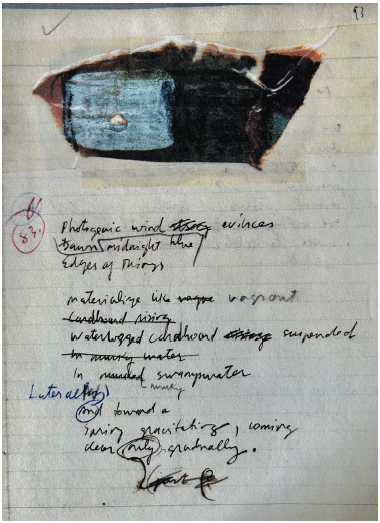 93
83.
Photogenic wind strong evinces
Dawn midnight blue
Edges of things
materialize like vague vagrant
cardboard rising
Waterlogged cardboard suspended
in murky water
in swampwater
murky
Laterally
and toward a
Spring gravitating, coming
clear only gradually.